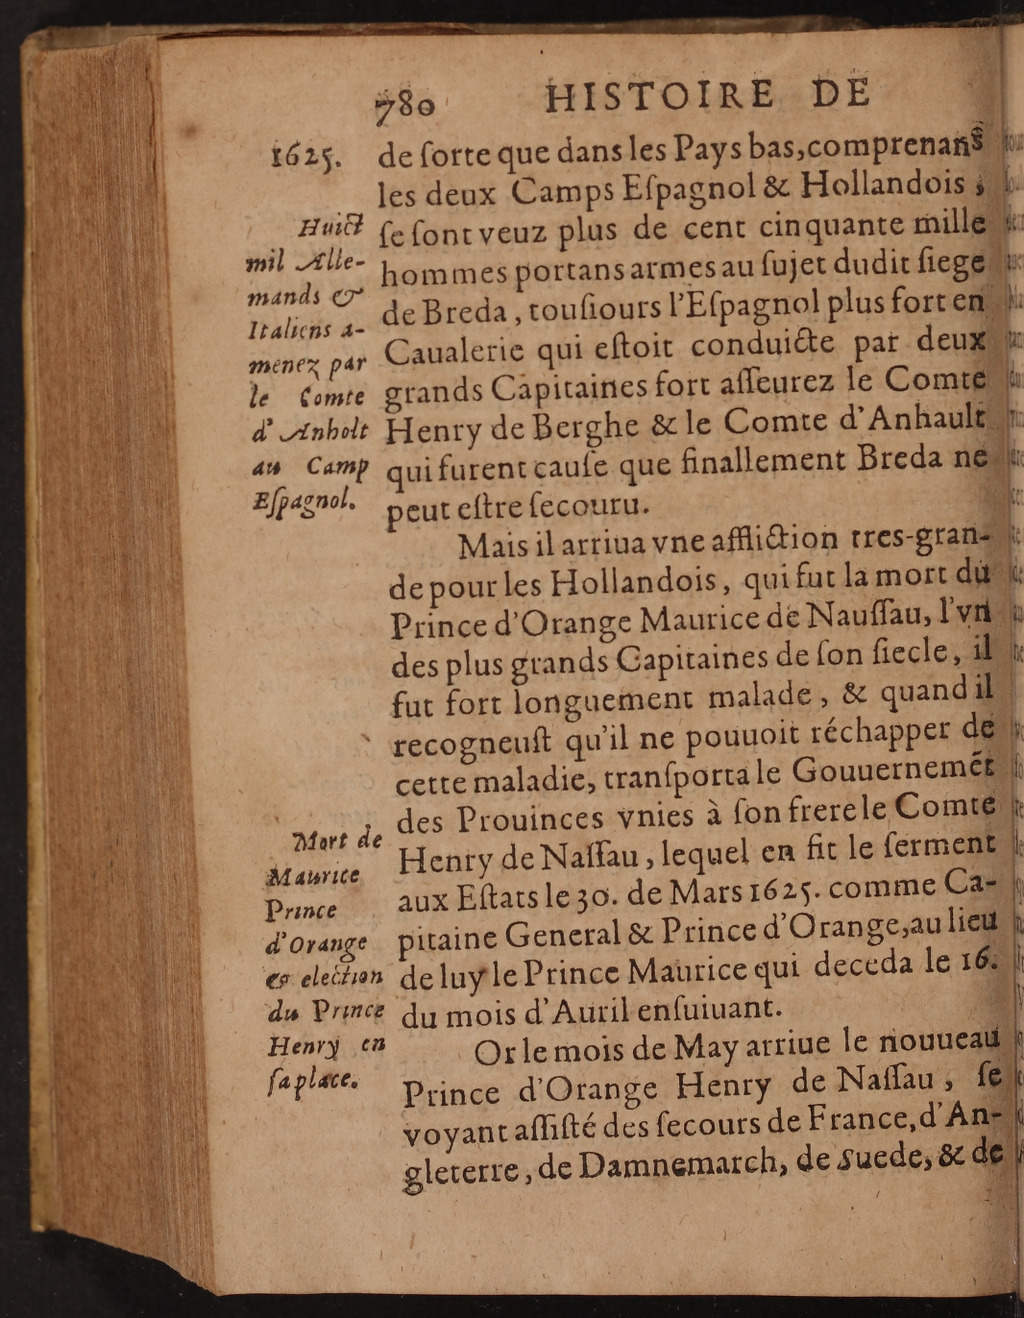 780 HISTOIRE DE
1625.
de ſorte que dans les Pays bas, comprenans
les deux Camps Eſpagnol & Hollandois ;
ſe ſont veuz plus de cent cinquante mille
hommes portans armes au ſujet dudit ſiege
de Breda, touſiours l'Eſpagnol plus fort en
Caualerie qui eſtoit conduicte par deux
grands Capitaines fort aſſeurez le Comte
Henry de Berghe & le Comte d'Anhault
qui furent cauſe que finallement Breda ne
peut eſtre ſecouru.
Huict
mil Alle-
mands &
Italiens a-
menez par
le Comte
d'Anholt
au Camp
Eſpagnol.
Mais il arriua vne affliction tres-gran-
de pour les Hollandois, qui fut la mort du
Prince d'Orange Maurice de Nauſſau, l'vn
des plus grands Capitaines de ſon ſiecle, il
fut fort longuement malade, & quand il
recogneuſt qu'il ne pouuoit réchapper de
cette maladie, tranſporta le Gouuernemẽt
des Prouinces vnies à ſon frere le Comte
Henry de Naſſau, lequel en fit le ſerment
aux Eſtats le 30. de Mars 1625. comme Ca-
pitaine General & Prince d'Orange, au lieu
de luy le Prince Maurice qui deceda le 16.
du mois d'Auril enſuiuant.
Mort de
Maurice
Prince
d'Orange
& election
du Prince
Henry en
ſa place.
Or le mois de May arriue le nouueau
Prince d'Orange Henry de Naſſau, ſe
voyant aſſiſté des ſecours de France, d'An-
gleterre, de Damnemarch, de Suede, & de